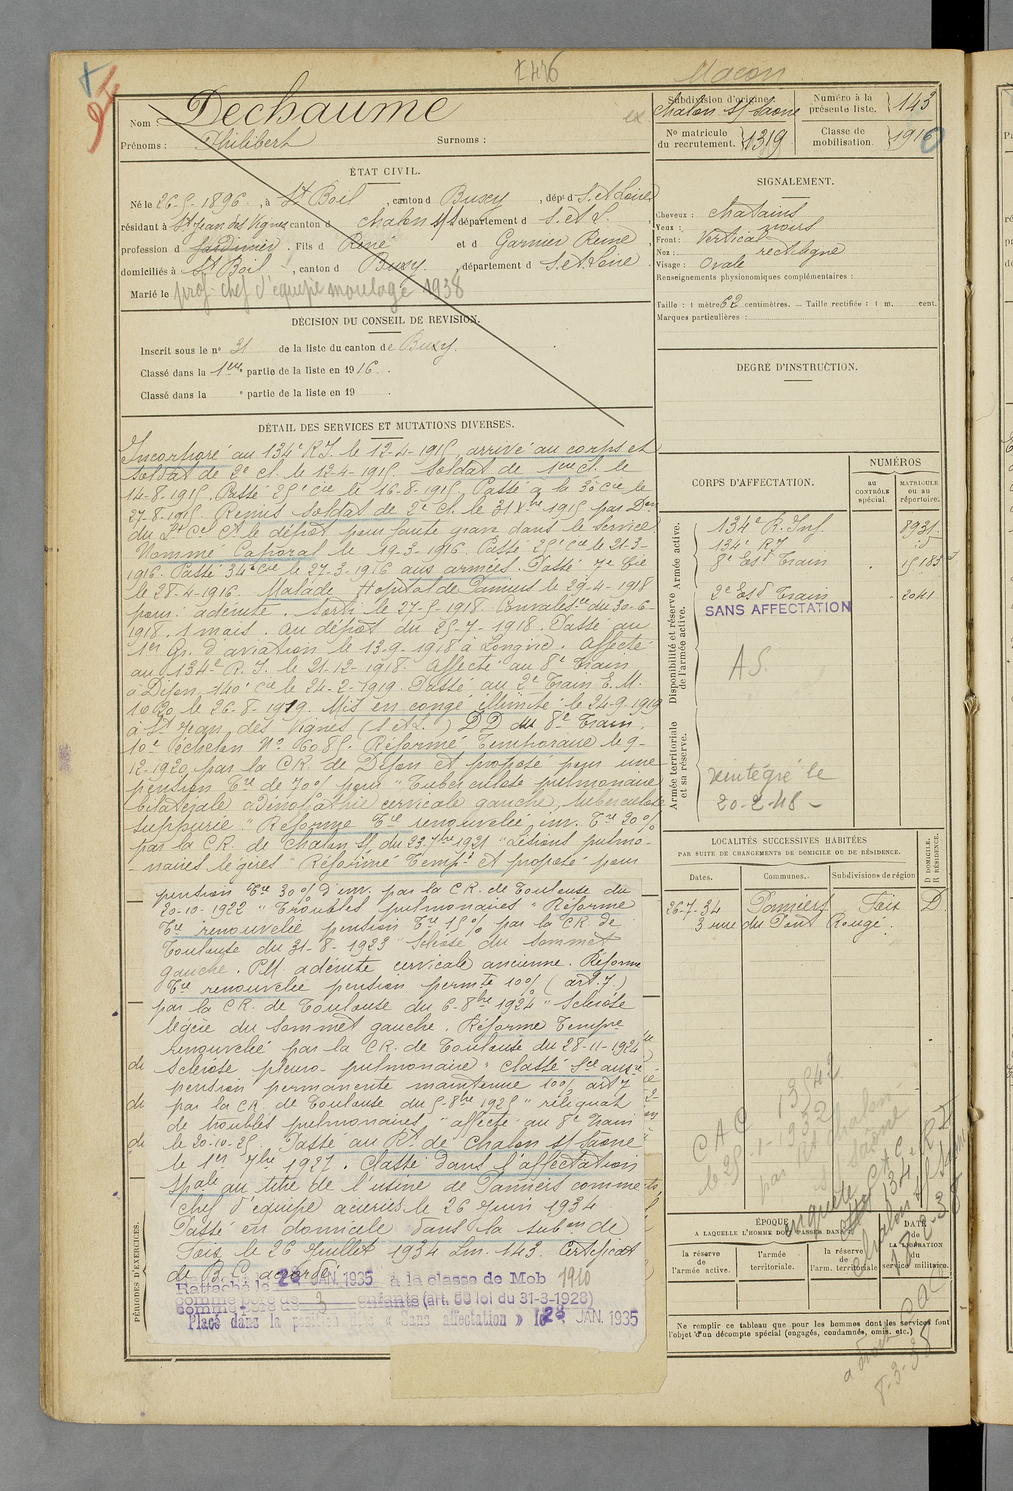 1476
Macon
Nom : Dechaume
Prénoms : Philibert Surnoms :
ex
Subdivision d'origine
Chalon s/ Saône
Numéro à la présente liste. 143
No matricule du recrutement. 1319
Classe de mobilisation. 1910
ÉTAT CIVIL.
Né le 26-5-1896, à St Boil, canton d Buxy, dépt d S. et Loire
résidant à St Jean des Vignes canton d Chalon s/S département d S. et L.
profession d Jardinier. Fils d René et d Garnier Reine,
domiciliés à St Boil, canton d Buxy, département d S. et Loire.
Marié le prof. chef d'équipe moulage 1938
SIGNALEMENT.
Cheveux : chatains
Yeux : noirs
Front : Vertical
Nez : rectiligne
Visage : Ovale
Renseignements physionomiques complémentaires :
Taille : 1 mètre 62 centimètres. — Taille rectifiée : 1 m. cent.
Marques particulières :
DÉCISION DU CONSEIL DE REVISION.
Inscrit sous le no 31 de la liste du canton de Buxy.
Classé dans la 1ere partie de la liste en 1916.
Classé dans la e partie de la liste en 19
DEGRÉ D'INSTRUCTION.
DÉTAIL DES SERVICES ET MUTATIONS DIVERSES.
Incorporé au 134e R.I. le 12-4-1915 arrivé au corps et
soldat de 2e Cl. le 12-4-1915 Soldat de 1ere Cl. le
14-8-1915. Passé 25e Cie le 16-8-1915. Passé à la 30 Cie le
27-8-1915. Remis soldat de 2e Cl. le 31 Xbre 1915 par Don
du Lt Cel Ct le dépôt pour faute grave dans le service
Nommé Caporal le 19-3-1916. Passé 25e Cie le 21-3-
1916. Passé 34e Cie le 27-3-1916 aux armées. Passé 7e Cie
le 28-4-1916. Malade Hopital de Pamiers le 29-4-1918
pour adénite. Sorti le 27-5-1918. Convalesce du 30-6-
1918. 1 mois. Au dépôt du 25-7-1918. Passé au
1er Gr. d'aviation le 13-9-1918 à Longvic. Affecté
au 134e R.I. le 21-12-1918. Affecté au 8e Train
à Dijon, 140e Cie le 24-2-1919. Passé au 2e Train E.M.
le 26-8-1919. Mis en congé illimité le 24-9-1919
à St Jean des Vignes (S. et L.) DD du 8e Train
10e échelon No 6085. Réformé Temporaire le 9-
12-1920 par la C.R. de Dijon et proposé pour une
pension Tre de 70% pour "Tuberculose pulmonaire
bilatérale adénopathie cervicale gauche, tuberculose
suppurée". Réforme Tre renouvelée inv. Tre 20%
par la C.R. de Chalon s/S du 23 7bre 1921 "Lésions pulmo-
-naires légères" Réformé Tempre et proposé pour
pension Tre 30% d'inv. par la C.R. de Toulouse du
20-10-1922 "Troubles pulmonaires" Réforme
Tre renouvelée pension Tre 15% par la C.R. de
Toulouse du 31-8-1923 "Sclérose du sommet
gauche. P.M. adénite cervicale ancienne. Réforme
Tre renouvelée pension permte 10% (art. 7.)
par la C.R. de Toulouse du 6-8bre 1924 "Sclérose
légère du sommet gauche. Réforme Tempre
renouvelée par la C.R. de Toulouse du 28-11-1924
Sclérose pleuro-pulmonaire" Classé Sce auxre
pension permanente maintenue 10% art 7
par la C.R. de Toulouse du 5-8bre 1925 "reliquat
de troubles pulmonaires" affecté au 8e Train
le 20-10-25. Passé au Rt de Chalon s/ Saône
le 1er 7bre 1927. Classé dans l'affectation
Spale au titre de l'usine de Pamiers comme
chef d'équipe aciéries le 26 Juin 1934
Passé en domicile dans la subon de
Foix le 26 Juillet 1934 Ln. 143. Certificat
de B.C. accordé.
Rattaché le 28 JAN. 1935 à la classe de Mob 1910
comme père de 3 enfants (art. 58 loi du 31-3-1928)
Placé dans la position dite « Sans affectation » le 28 JAN. 1935
PÉRIODES D'EXERCICES.
CORPS D'AFFECTATION.
NUMÉROS
au CONTRÔLE spécial.
MATRICULE ou au répertoire.
Armée active.
134e R. Inf. 8931
134e R.I. id
8e Esd Train 15183
Disponibilité et réserve de l'armée active.
2e Esd Train 2041
SANS AFFECTATION
A S.
Armée territoriale et sa réserve.
réintégré le
20-2-48 -
LOCALITÉS SUCCESSIVES HABITÉES
PAR SUITE DE CHANGEMENTS DE DOMICILE OU DE RÉSIDENCE.
Dates. Communes. Subdivisions de région D DOMICILE. R RÉSIDENCE.
26-7-34 Pamiers Foix D.
3 rue du Pont Rougé.
C A C 13542
le 25-1-1932
par Rt Chalon
s/ Saône
enquête
ÉPOQUE
A LAQUELLE L'HOMME DOIT PASSER DANS
la réserve de l'armée active.
l'armée territoriale.
la réserve de l'arm. territoriale
DATE de LA LIBÉRATION du service militaire.
Ne remplir ce tableau que pour les hommes dont les services font
l'objet d'un décompte spécial (engagés, condamnés, omis, etc.)
8-3-38